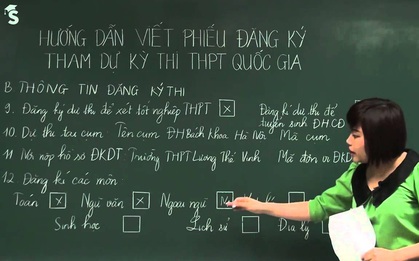 S
HƯỚNG DẪN VIẾT PHIẾU ĐĂNG KÝ
THAM DỰ KỲ THI THPT QUỐC GIA
B. THÔNG TIN ĐĂNG KÝ THI
9. Đăng ký dự thi để xét tốt nghiệp THPT x Đăng kí dự thi để tuyển sinh ĐH.CĐ
10. Dự thi tại cụm Tên cụm ĐH Bách Khoa Hà Nội Mã cụm
11 Nơi nộp hồ sơ ĐKDT Trường THPT Lương Thế Vinh Mã đơn vị ĐKDT
12 Đăng kí các môn
Toán x Ngữ văn x Ngoại ngữ N
Sinh học Lịch sử Địa lý